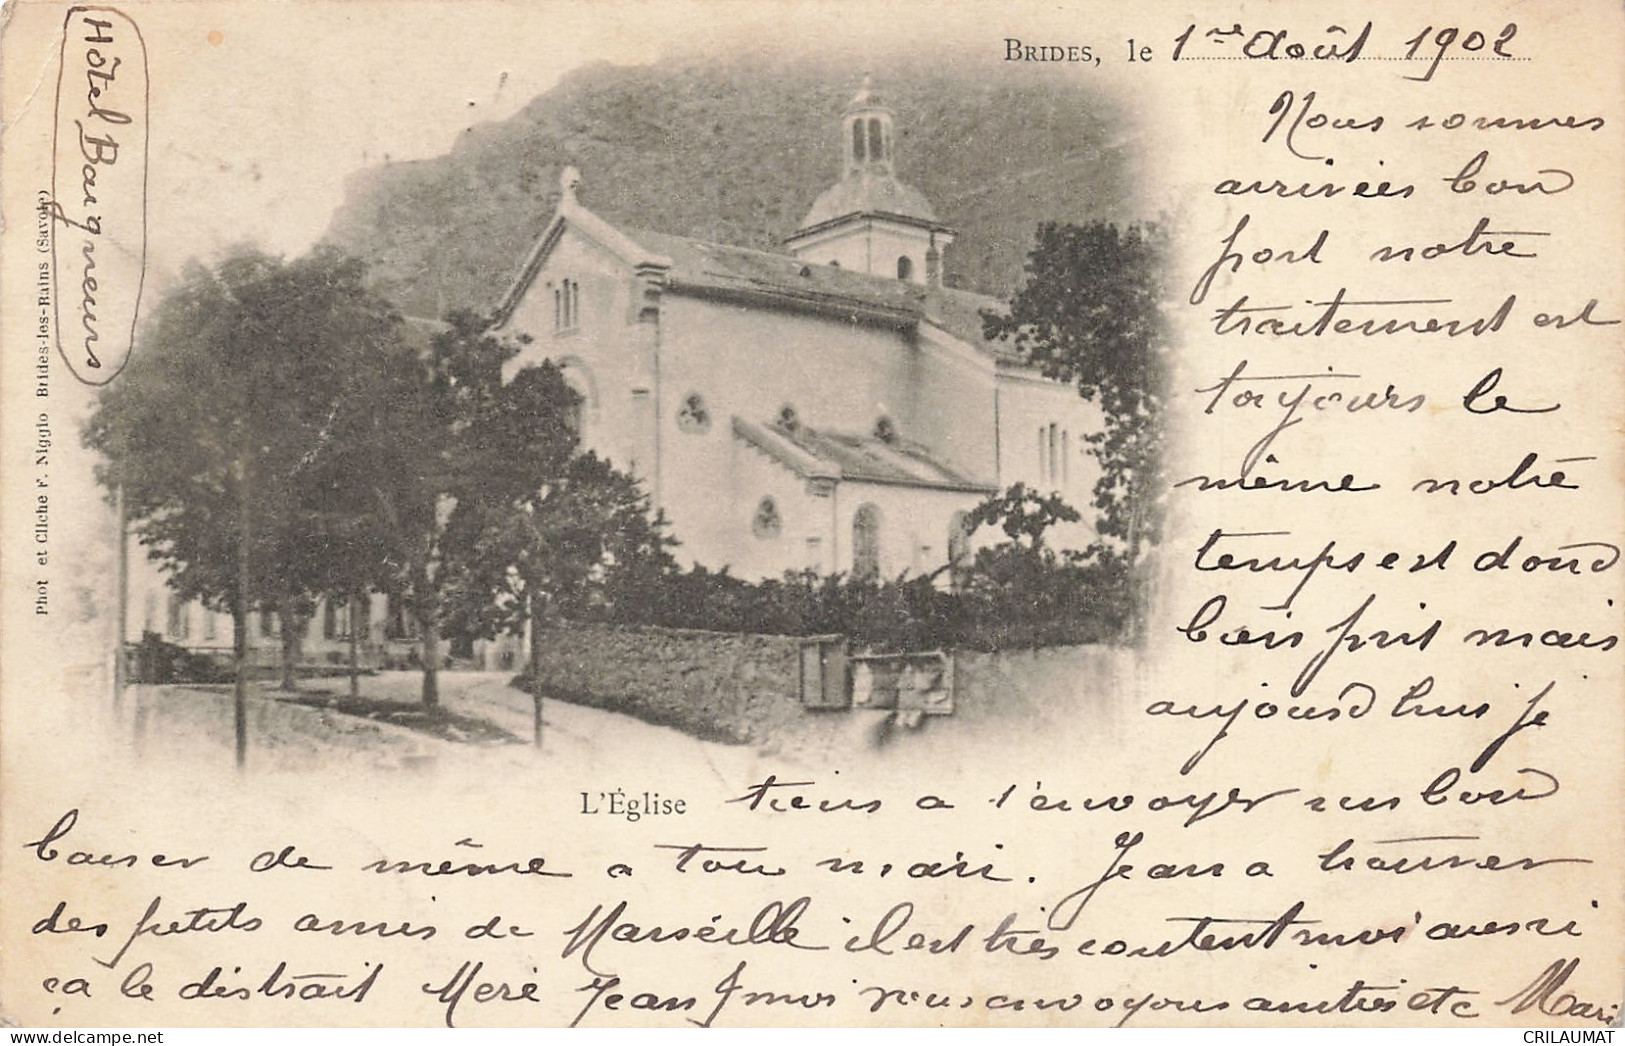 BRIDES, le 1er Août 1902
Hôtel Baigneurs
Phot et Cliche F. Niggio Brides-les-Bains (Savoie)
Nous sommes
arrivées bon
port notre
traitement est
toujours le
même notre
temps est donc
bien pris mais
aujourd'hui je
L'Église
tiens a t'envoyer un bon
baiser de même a ton mari. Jean a trouver
des petits amis de Marseille il est très content moi aussi
ça le distrait Mere Jean J moi vous envoyons amitiés etc Marie
CRILAUMAT